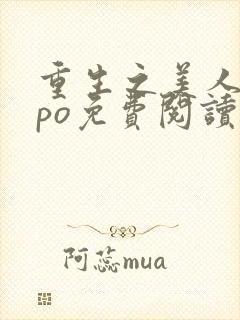 重生之美人
po免費閱讀
阿蕊mua